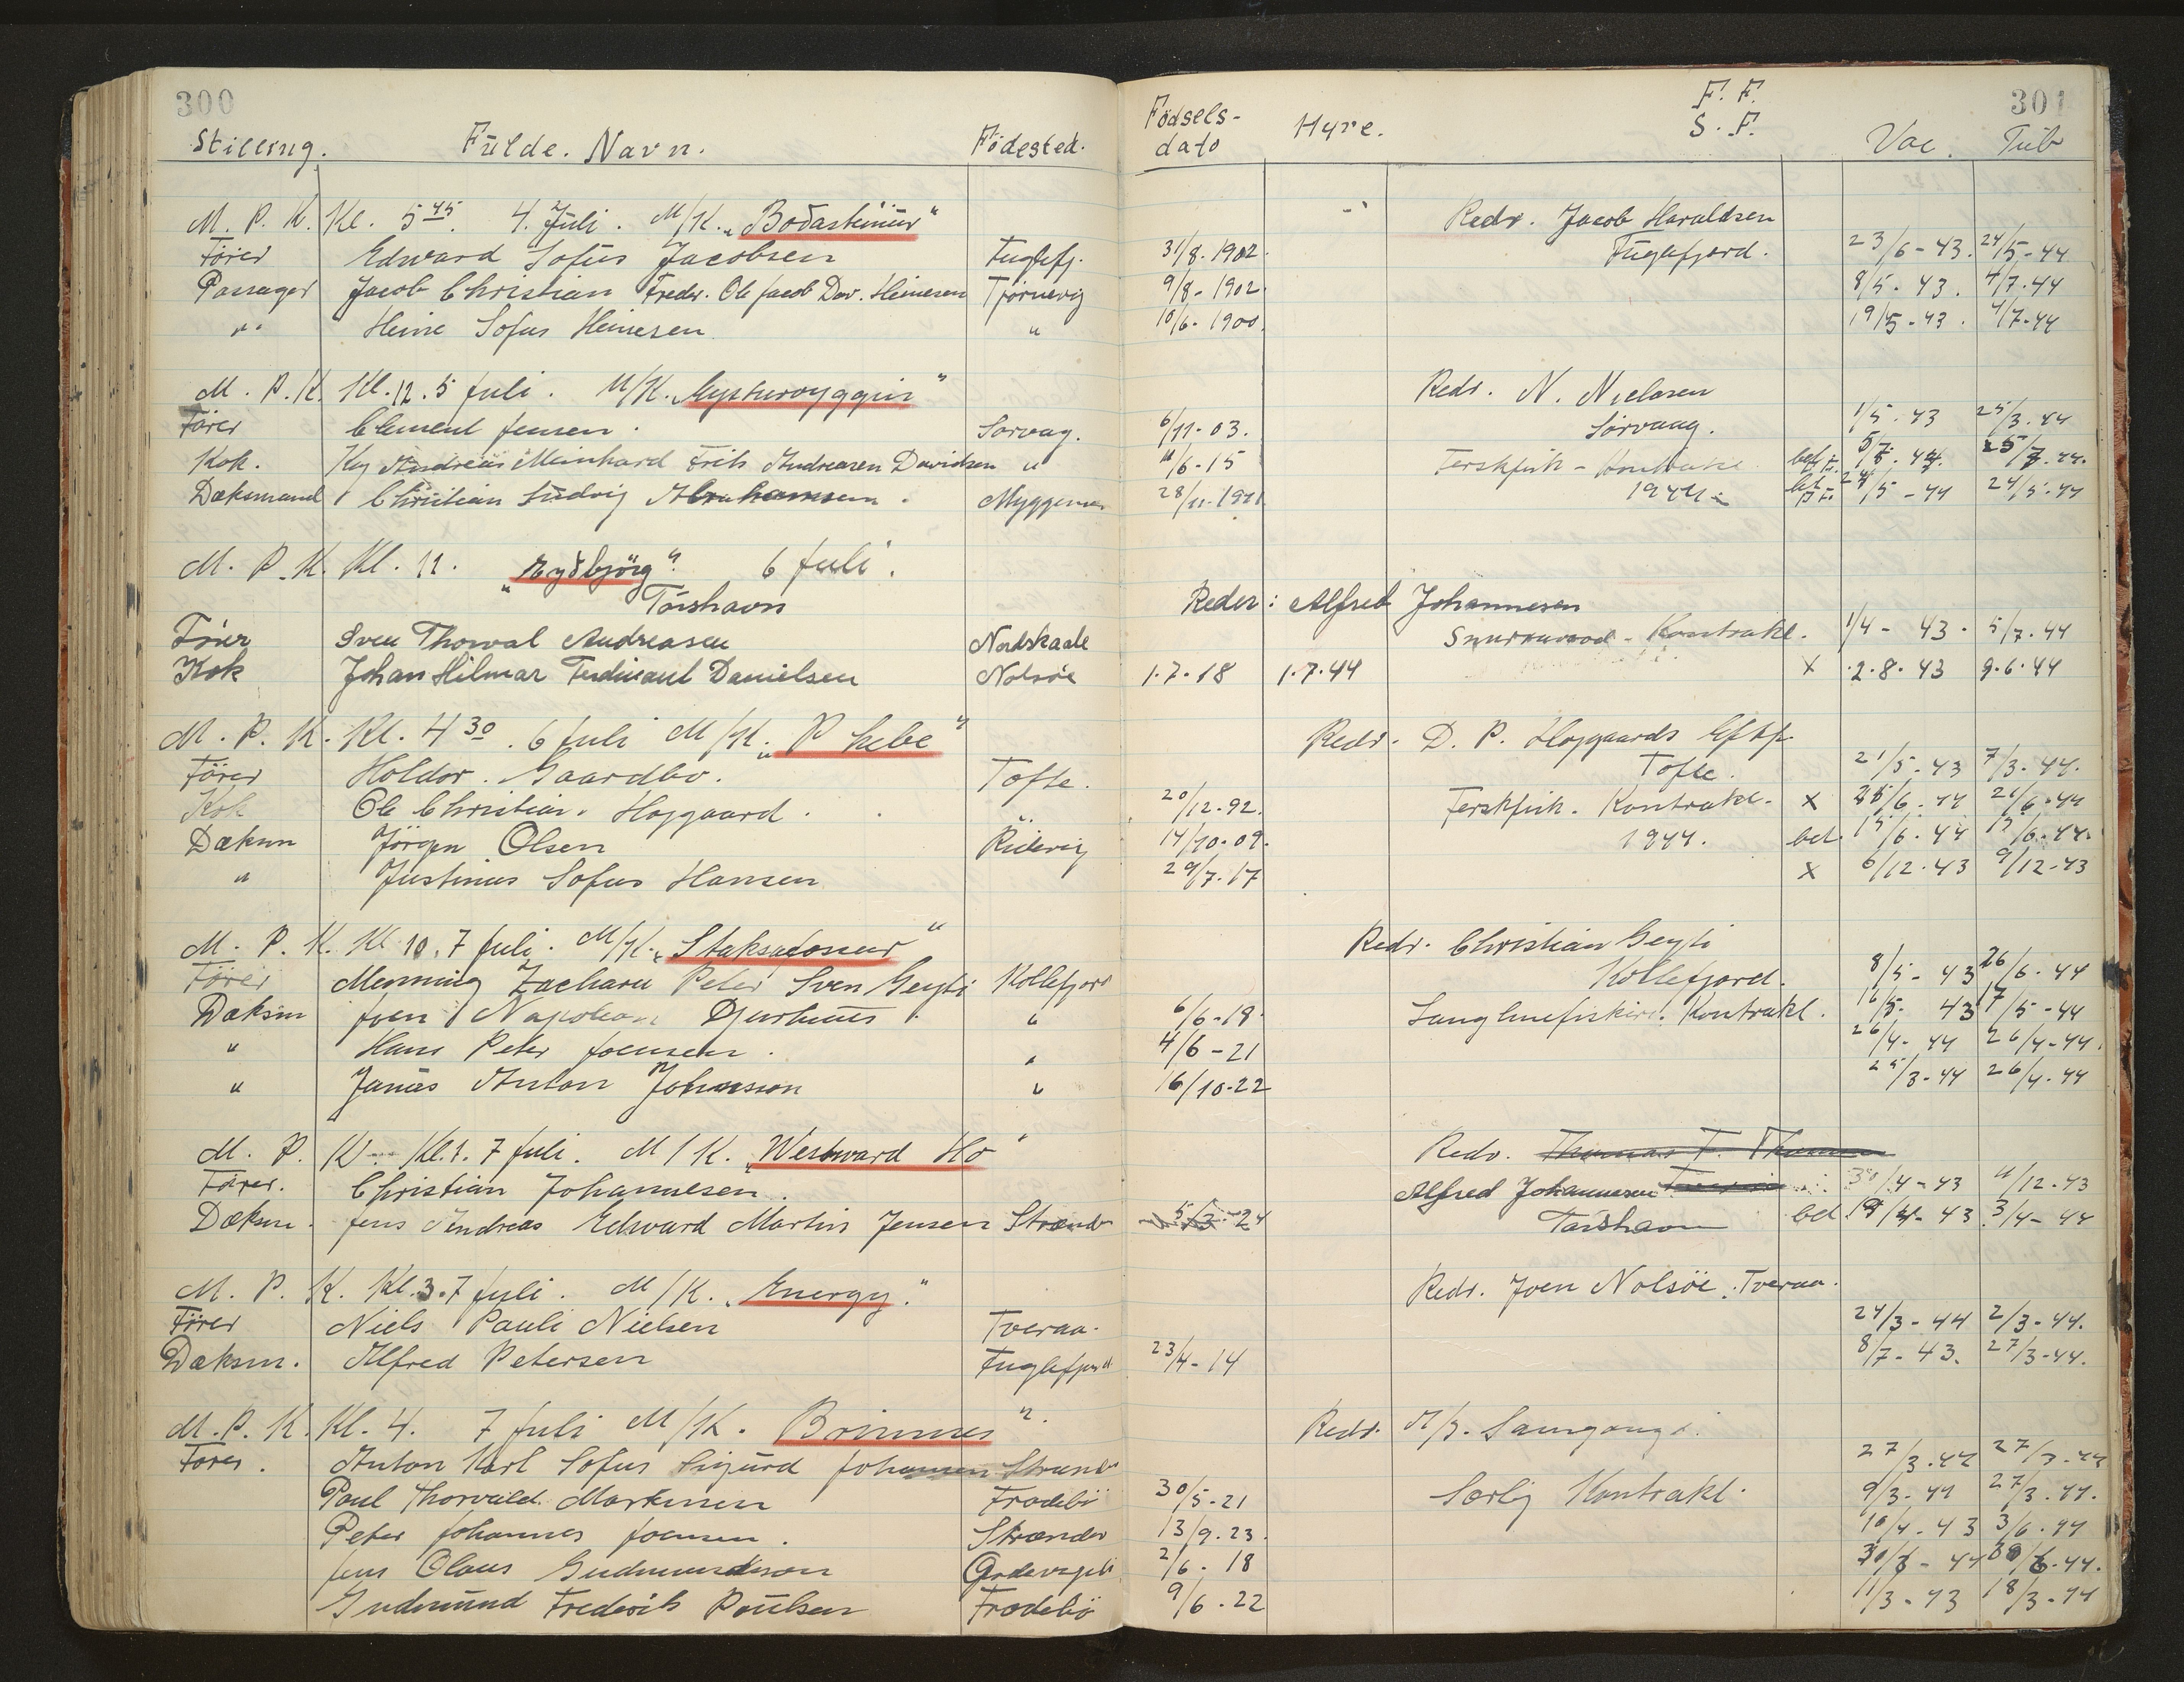 300
301
Stilling. Fülde. Navn. Födested. Födsels-dato Hyre. F. F. S. F. Vac. Tub
M. P. K. Kl. 5 45. 4. Juli. M/K. „Bodasteinur" Redr. Jacob Haraldsen
Förer Edward Sofus Jacobsen Fuglefj. 31/8. 1902. Fuglefjord. 23/6-43. 24/5-44
Passager Jacob Christian Fredr. Ole Jacob Dav. Heinesen Tjörnevig 9/8-1902. 8/5-43. 4/7-44
" Heine Sofus Heinesen " 10/6-1900. 19/5-43. 4/7-44
M. P. K. Kl. 12. 5 Juli. M/K. „Eysturoyggin" Redr. N. Nielasen
Förer Clement Jensen. Sorvag. 6/11-03. Sörvaag. 1/5-43 25/3-44
Kok. Kaj Andreas Meinhard Frits Andreasen Davidsen " /6-15 Ferskfisk-Kontrakt bet. 5/7.44. 25/7.44.
Dæksmand Christian Ludvig Abrahamsen. Myggenæs 28/11.1911 1944. bet 24/5-44 24/5-44
M. P. K. Kl. 11. „Eydbjörg" 6 Juli.
Torshavn Reder: Alfred Johannesen
Förer Sven Thorval Andreasen Nordskaale Snurrevaad-Kontrakt. 1/4-43. 5/7.44
Kok Johan Hilmar Ferdinant Danielsen Nolsöe 1.7.18 1.7.44 x 2.8.43 9.6.44
M. P. K. Kl. 4 30. 6 Juli M/K. „Phebe" Redr. D. P. Højgaards Eftf.
Förer Holdor. Gaardbo. Tofte. Tofte. 21/5-43 7/3-44.
Kok Ole Christian. Højgaard. 20/12-92. Ferskfisk. Kontrakt. x 25/6-44 21/6-44
Dæksm Jörgen Olsen Ridevig 14/10-09. 1944. bet. 15/6-44 15/6-44.
" Justinus Sofus Hansen 29/7-17 x 6/12-43 9/12-43
M. P. K. Kl. 10. 7 Juli. M/K. „Staksadonur" Redr. Christian Geyti
Förer Menning Zacharu Peter Sven Geyti Kollefjord Kollefjord. 8/5-43 26/6-44
Dæksm Joen Napoleon Djurhuus. " 6/6-18. Langlinefiskeri. Kontrakt. 16/5-43 17/5-44
" Hans Peter Joensen. " 4/6-21 26/4-44 26/4-44.
" Janus Anton Johanson " 16/10-22 25/3-44 26/4-44
M. P. K. Kl. 1. 7 Juli. M/K. „Westward Ho" Redr. Thomas F. Thomsen
Förer. Christian Johannesen. Alfred Johannesen 30/4-43 11/12-43
Dæksm. Jens Andreas Edward Martin Jensen Strænder 5/3-24 Torshavn bet 19/4-43 3/4-44
M. P. K. Kl. 3. 7 Juli. M/K. „Energy." Redr. Joen Nolsöe. Tveraa.
Förer Niels Pauli Nielsen Tveraa. 24/3-44 2/3-44.
Dæksm. Alfred Petersen Fuglefjord 23/4-14 8/7-43. 27/3-44.
M. P. K. Kl. 4. 7 Juli M/K. Brimnes". Redr. A/S. Samgongd.
Förer. Anton Karl Sofus Sigurd Johansen Strænder 27/3.44 27/3-44
Paul Thorvald. Martinsen Frodebö 30/5-21 Særlig Kontrakt. 9/3-44 27/3.44.
Peter Johannes Joensen. Strænder 13/9.23. 10/4-43 3/6-44
Jens Olaus Gudmundson Ordevegsli 2/6-18 30/6-44 30/6-44.
Gudmund Frederik Poulsen Frodebö 9/6.22 11/3-43 18/3-44